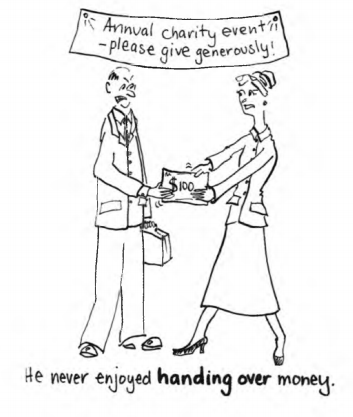 Annual charity event
-please give generously!
$100
He never enjoyed handing over money.